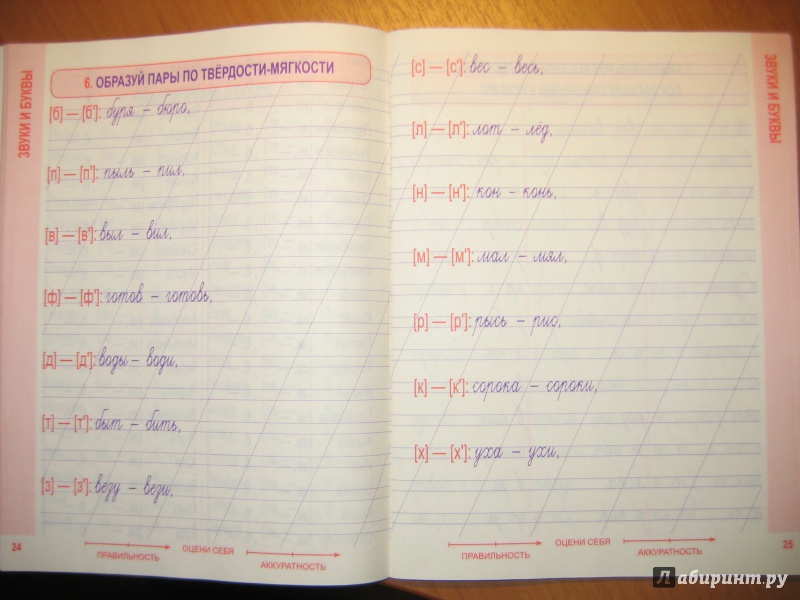 ЗВУКИ И БУКВЫ
6. ОБРАЗУЙ ПАРЫ ПО ТВЁРДОСТИ-МЯГКОСТИ
[б] — [б']: буря – бюро,
[п] — [п']: пыль – пил,
[в] — [в']: выл – вил,
[ф] — [ф']: готов – готовь,
[д] — [д']: воды – води,
[т] — [т']: быт – бить,
[з] — [з']: везу – вези,
24
ПРАВИЛЬНОСТЬ
ОЦЕНИ СЕБЯ
АККУРАТНОСТЬ
ЗВУКИ И БУКВЫ
[с] — [с']: вес – весь,
[л] — [л']: лот – лёд,
[н] — [н']: кон – конь,
[м] — [м']: мал – мял,
[р] — [р']: рысь – рис,
[к] — [к']: сорока – сороки,
[х] — [х']: уха – ухи,
ПРАВИЛЬНОСТЬ
ОЦЕНИ СЕБЯ
АККУРАТНОСТЬ
25
Лабиринт.ру